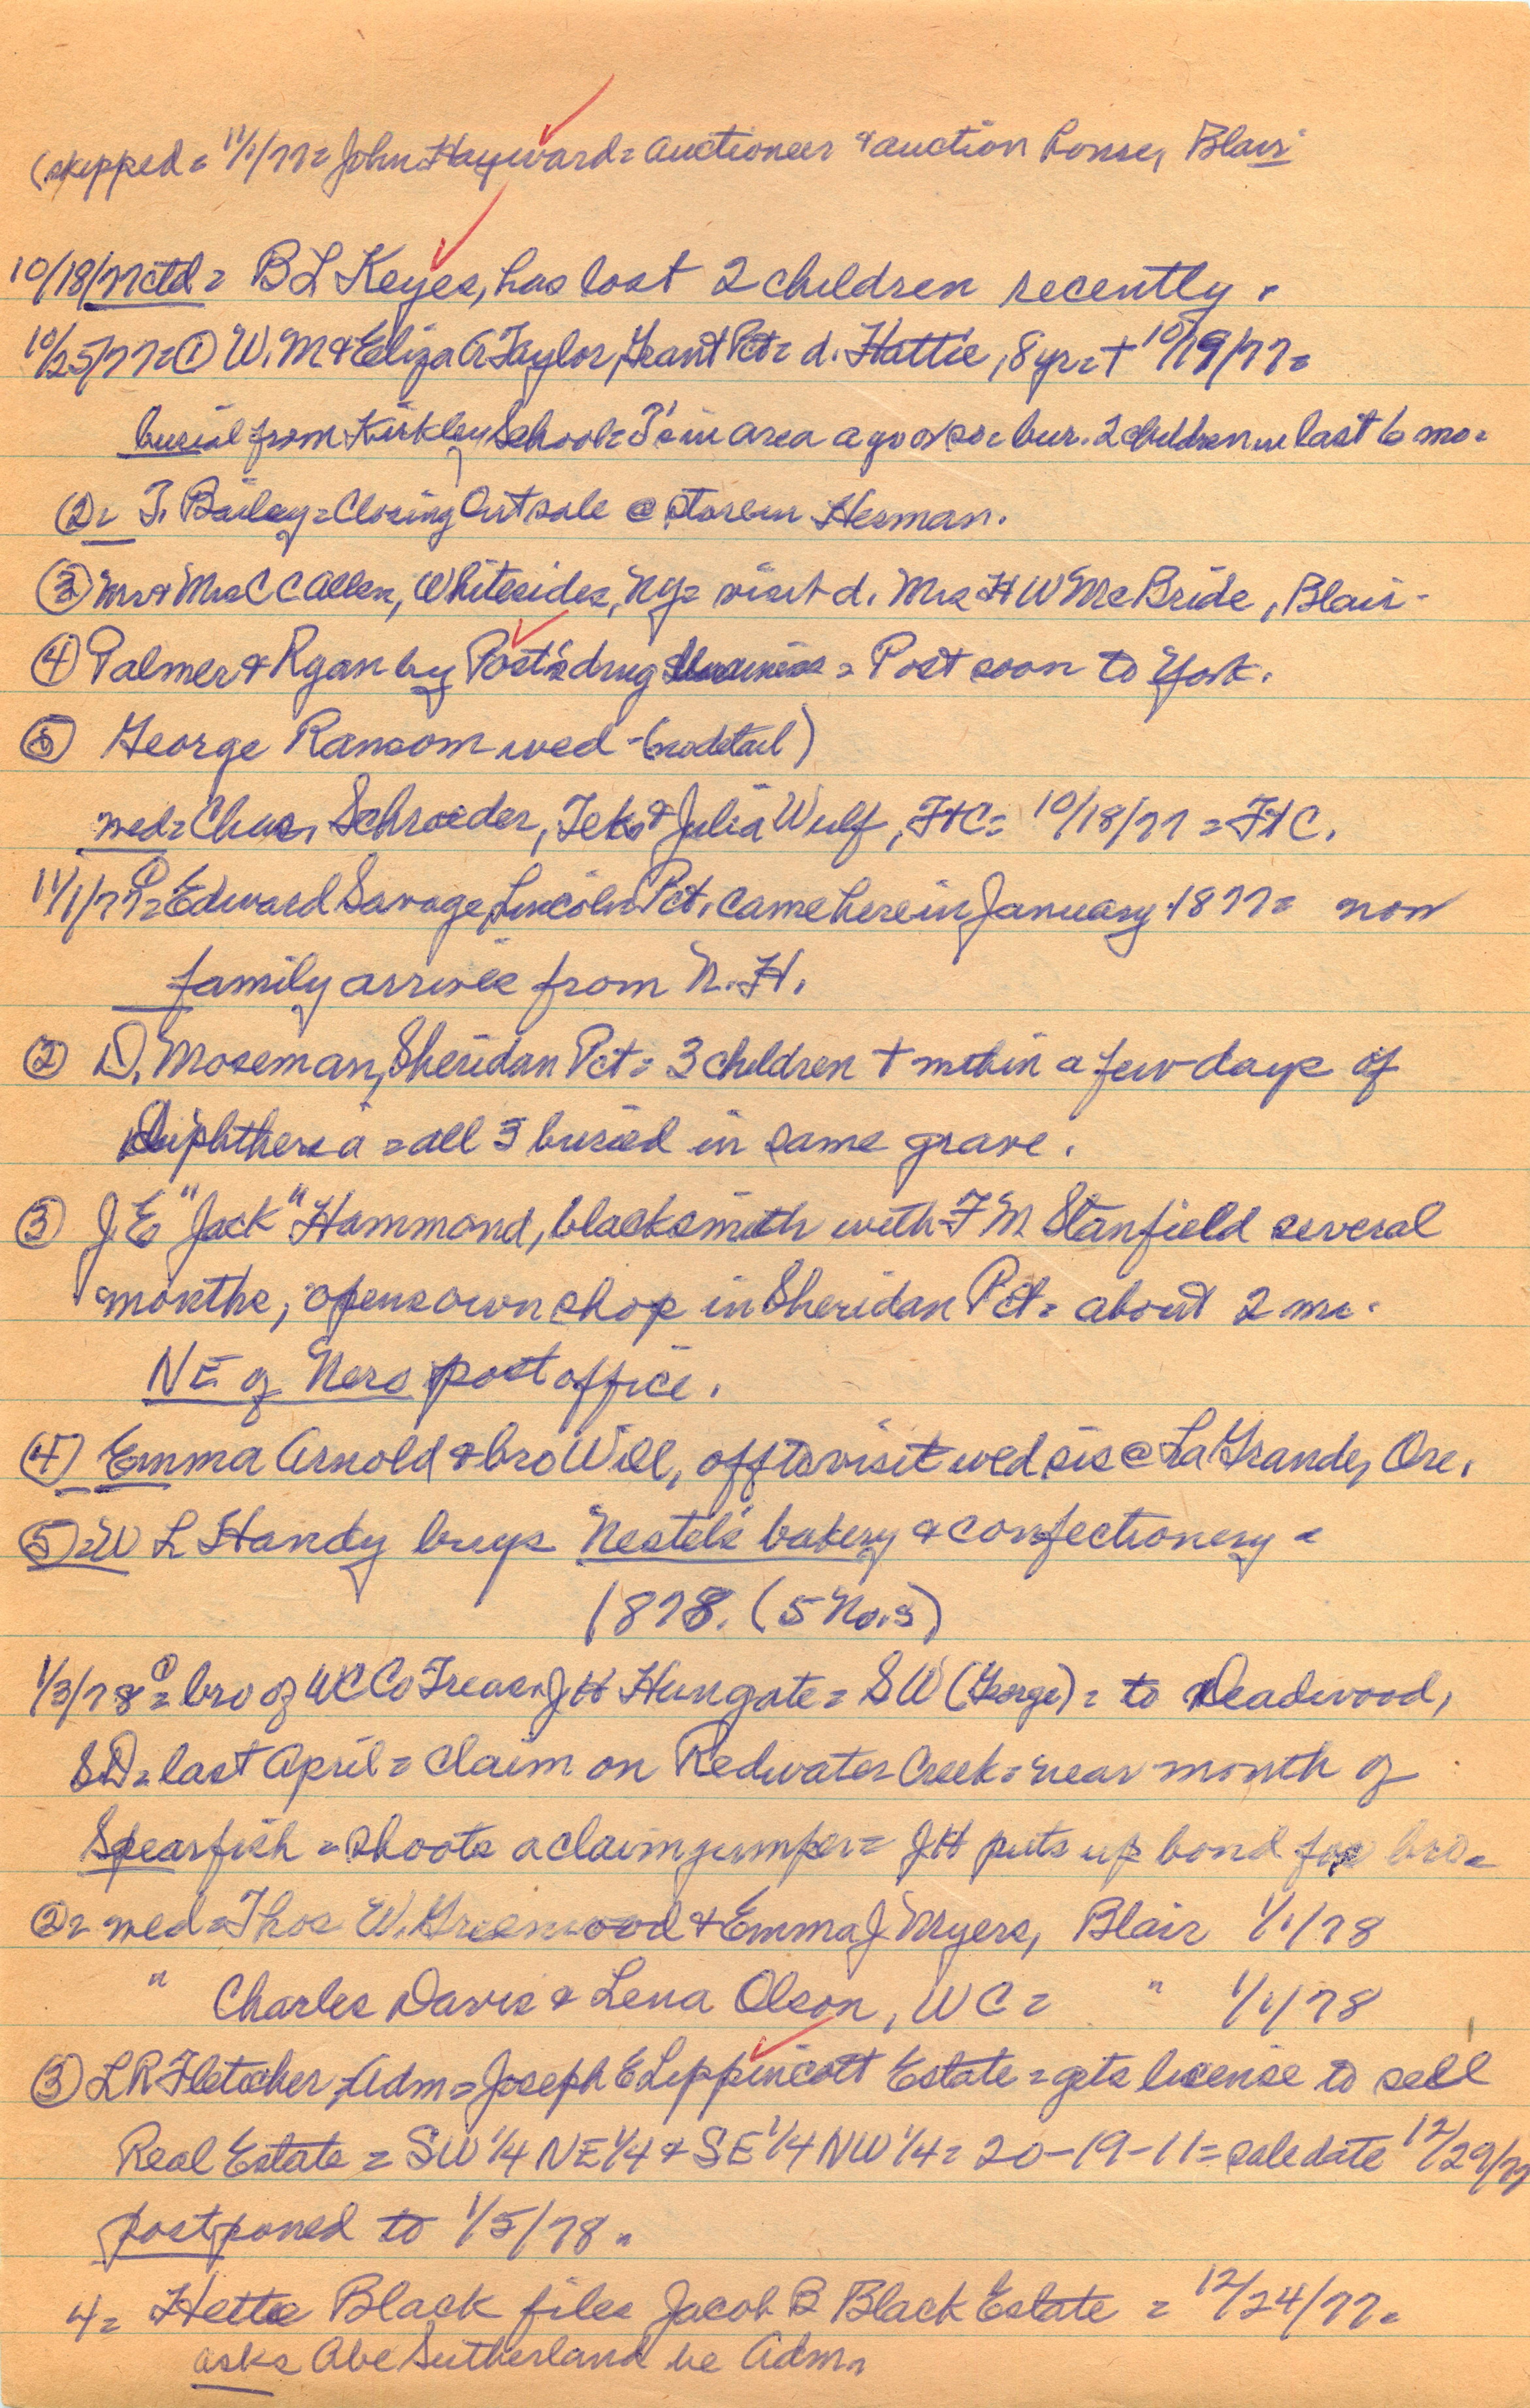 (skipped = 11/1/77 = John Hayward = auctioneer & auction house, Blair
10/18/77 ctd = B L Keyes, has lost 2 children recently.
10/25/77 = ① W. M & Eliza A Taylor, Grant Pct = d. Hattie, 8 yr = † 10/19/77 =
burial from School = in area ago = bur. 2 children in last 6 mo =
② = T. Bailey = Closing Out sale @ store in Herman.
③ Mr & Mrs C C Allen, Whitesides, NY = visit d. Mrs H W McBride, Blair -
④ Palmer & Ryan buy Post's drug business = Post soon to York.
⑤ George Ransom wed - (no detail)
wed = Chas. Schroeder, Tek. & Julia Wulf, Ft C = 10/18/77 = Ft C.
11/1/77 ① = Edward Savage, Lincoln Pct. came here in January 1877 = now
family arrives from N. H.
② D. Moseman, Sheridan Pct = 3 children † within a few days of
diphtheria = all 3 buried in same grave.
③ J E "Jack" Hammond, blacksmith with F M Stanfield several
months, opens own shop in Sheridan Pct = about 2 mi.
NE of Nero post office.
④ Emma Arnold & bro Will, off to visit wed sis @ La Grande, Ore.
⑤ = W L Handy buys Nestel's bakery & confectionery =
1878. (5 No.s)
1/3/78 ① = bro of WC Co Treas. J H Hungate = S W (George) = to Deadwood,
SD = last April = claim on Redwater Creek = near mouth of
Spearfish = shoots a claim jumper = J H puts up bond for bro =
② = wed = Thos W. Greenwood & Emma J Myers, Blair 1/1/78
" Charles Davis & Lena Olson, WC = " 1/1/78
③ L R Fletcher, Adm = Joseph E Lippincott Estate = gets license to sell
Real Estate = SW 1/4 NE 1/4 & SE 1/4 NW 1/4 = 20-19-11 = sale date 12/29/77
postponed to 1/5/78 =
4 = Hettie Black files Jacob B Black Estate = 12/24/77 =
asks Abe Sutherland be Adm.